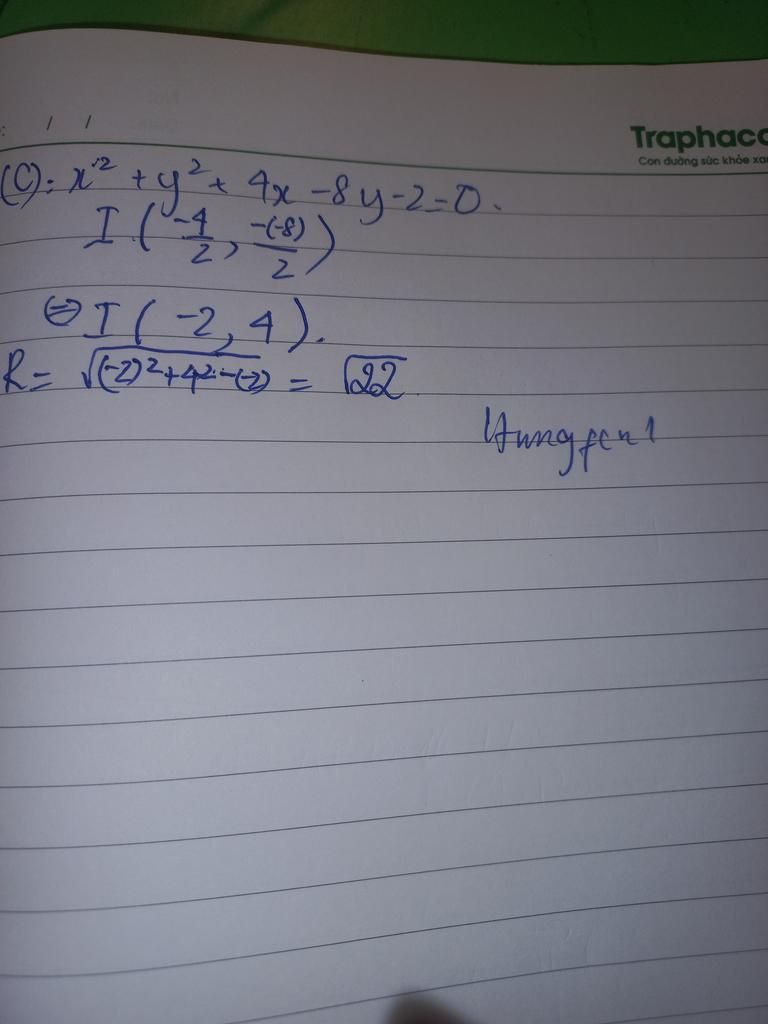 : / /
Traphaco
Con đường sức khỏe xa
(C): x² + y² + 4x - 8y - 2 = 0.
I (-4/2, -(-8)/2)
⇔ I (-2, 4).
R = √((-2)² + 4² - (-2)) = √22